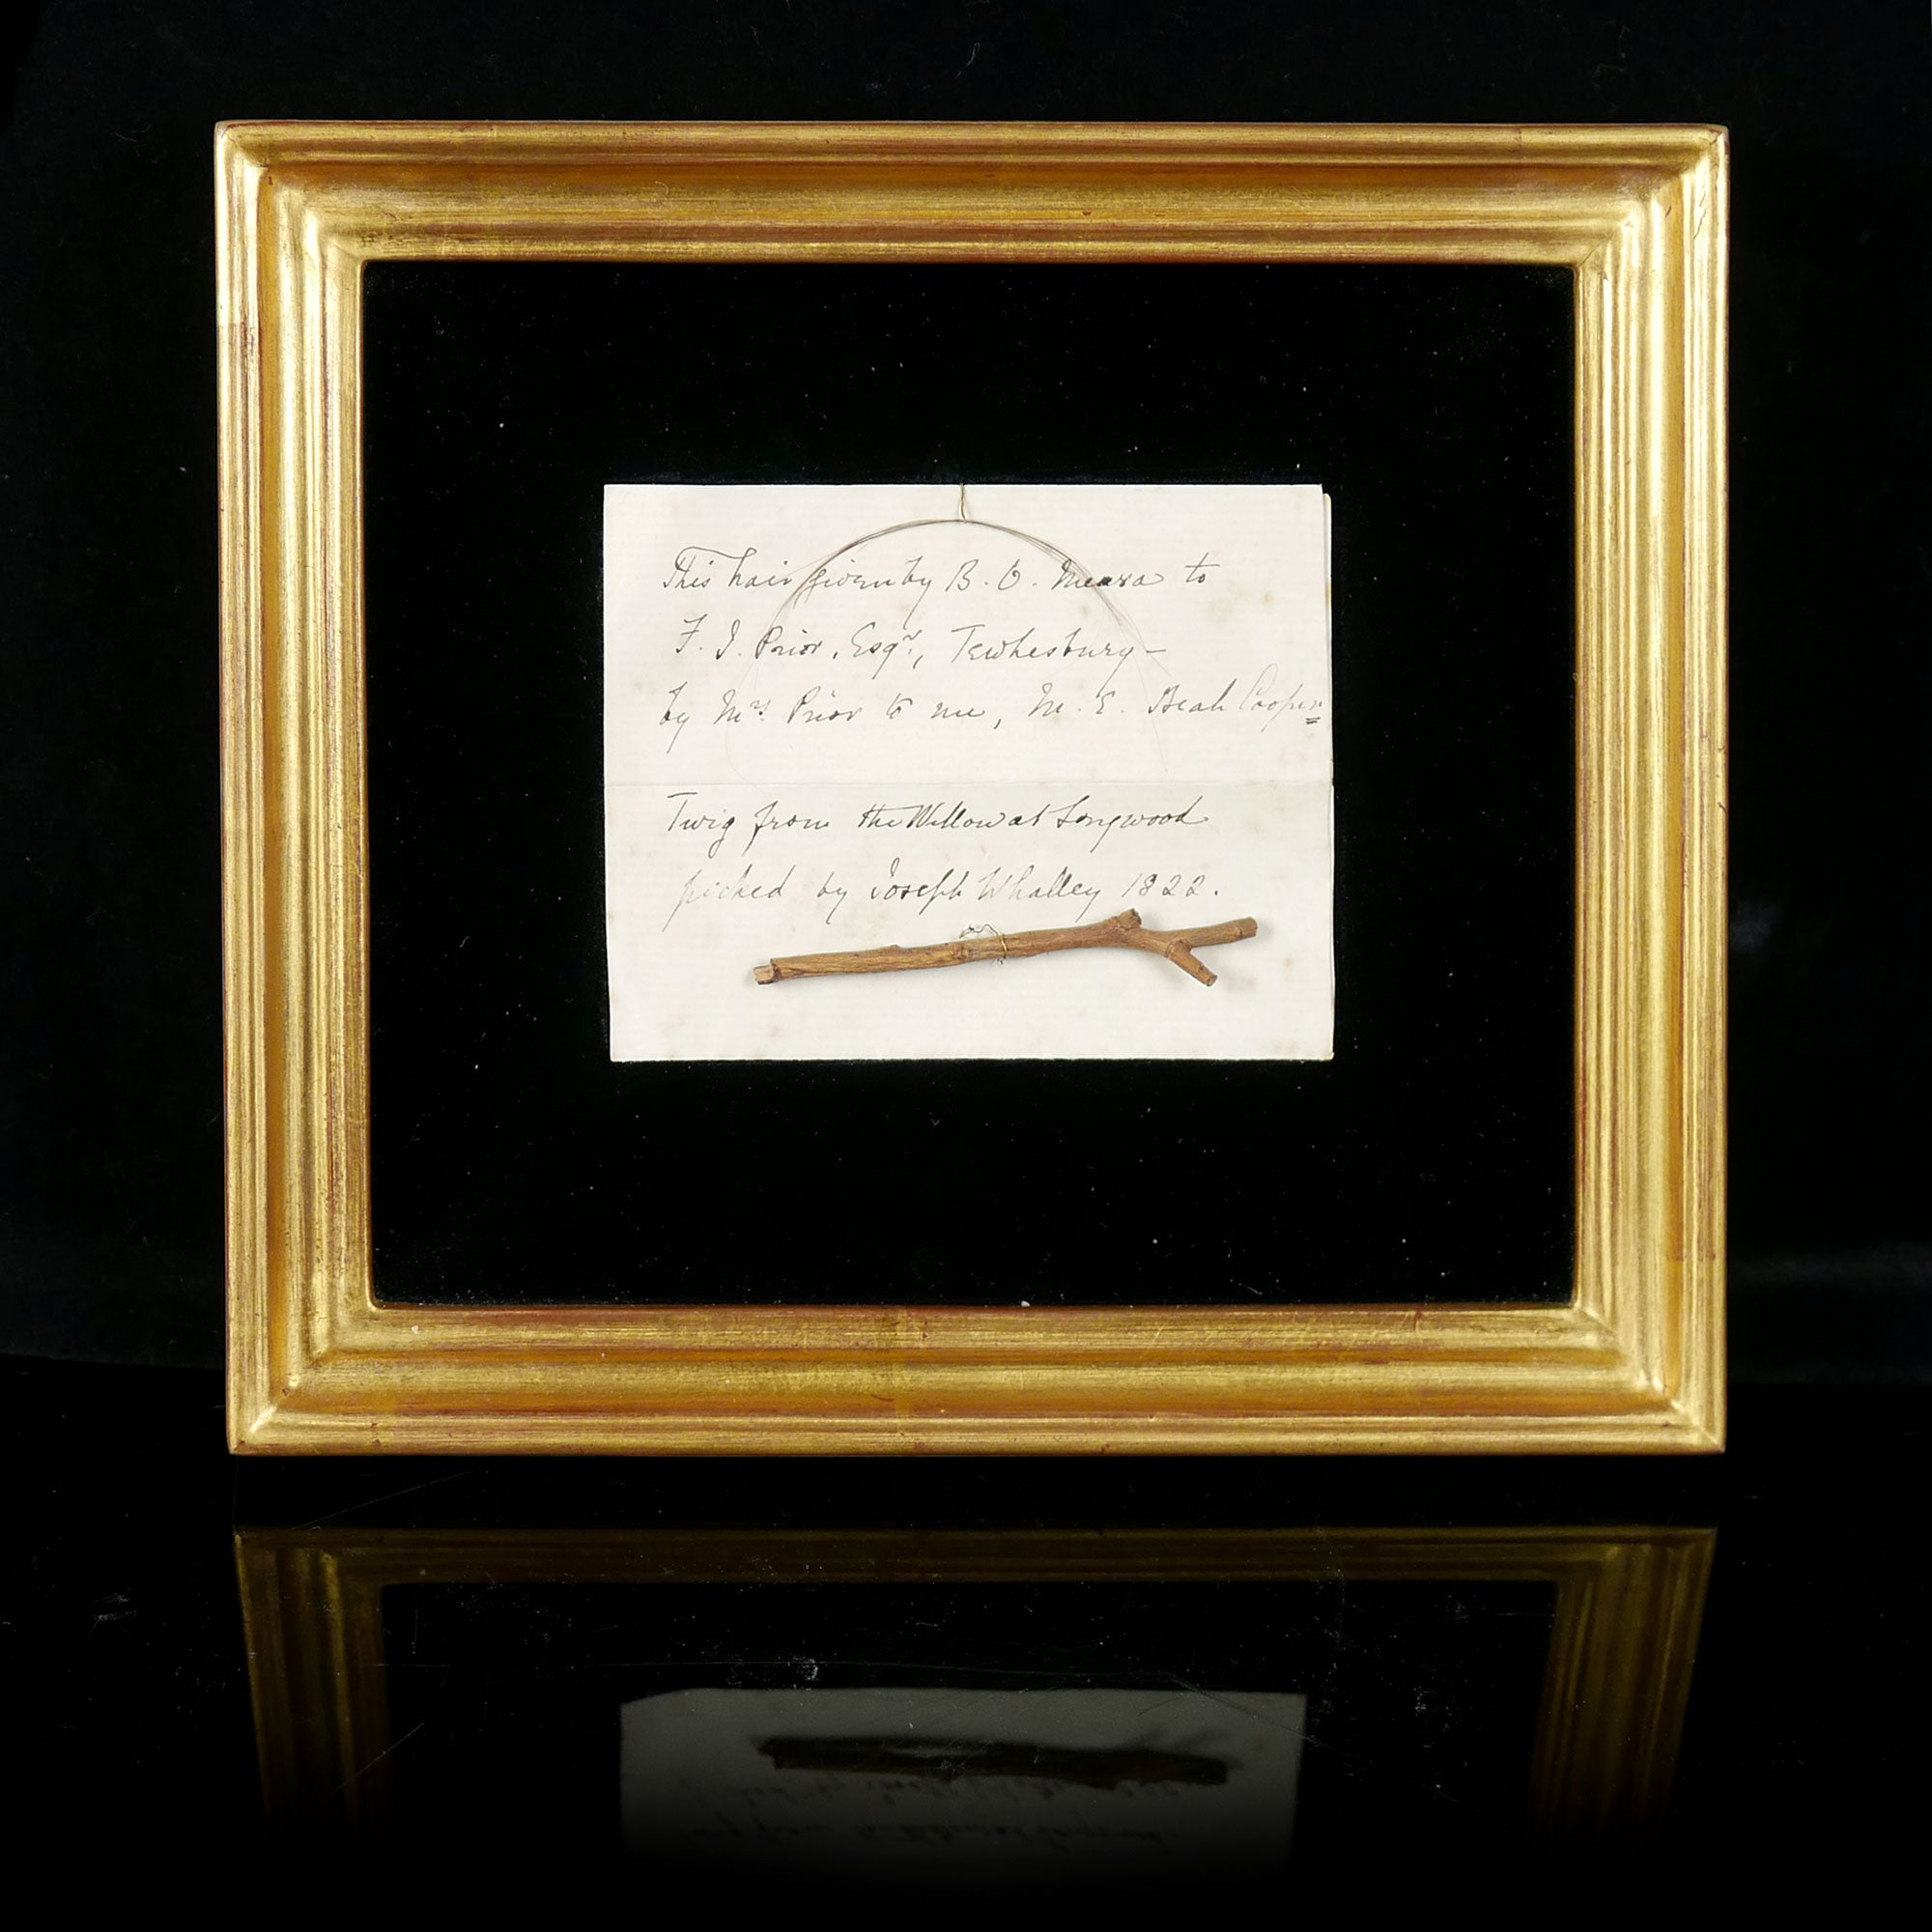 This hair given by B. O. Meara to
F. J. Prior, Esqr, Tewkesbury —
by Mrs. Prior to me, M. E. Beale Cooper
Twig from the Willow at Longwood
picked by Joseph Whalley 1822.